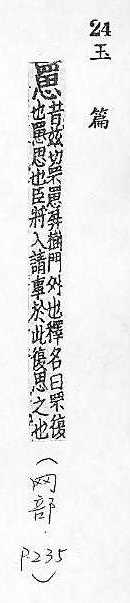 24 玉篇
罳
昔玆切罘罳屏樹門外也釋名曰罘復
也罳思也臣將入請事於此復思之也
(网部. P235)